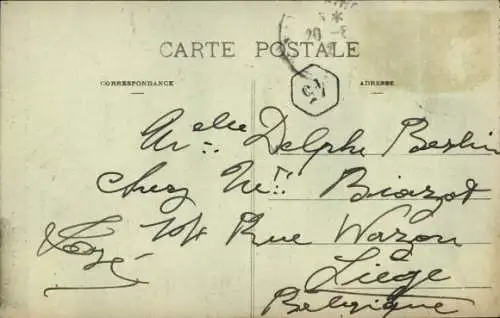 CARTE POSTALE
CORRESPONDANCE ADRESSE
Melle Delphe Berlin
Chez Mr Biazot
104 Rue Wazon
José
Liège
Belgique